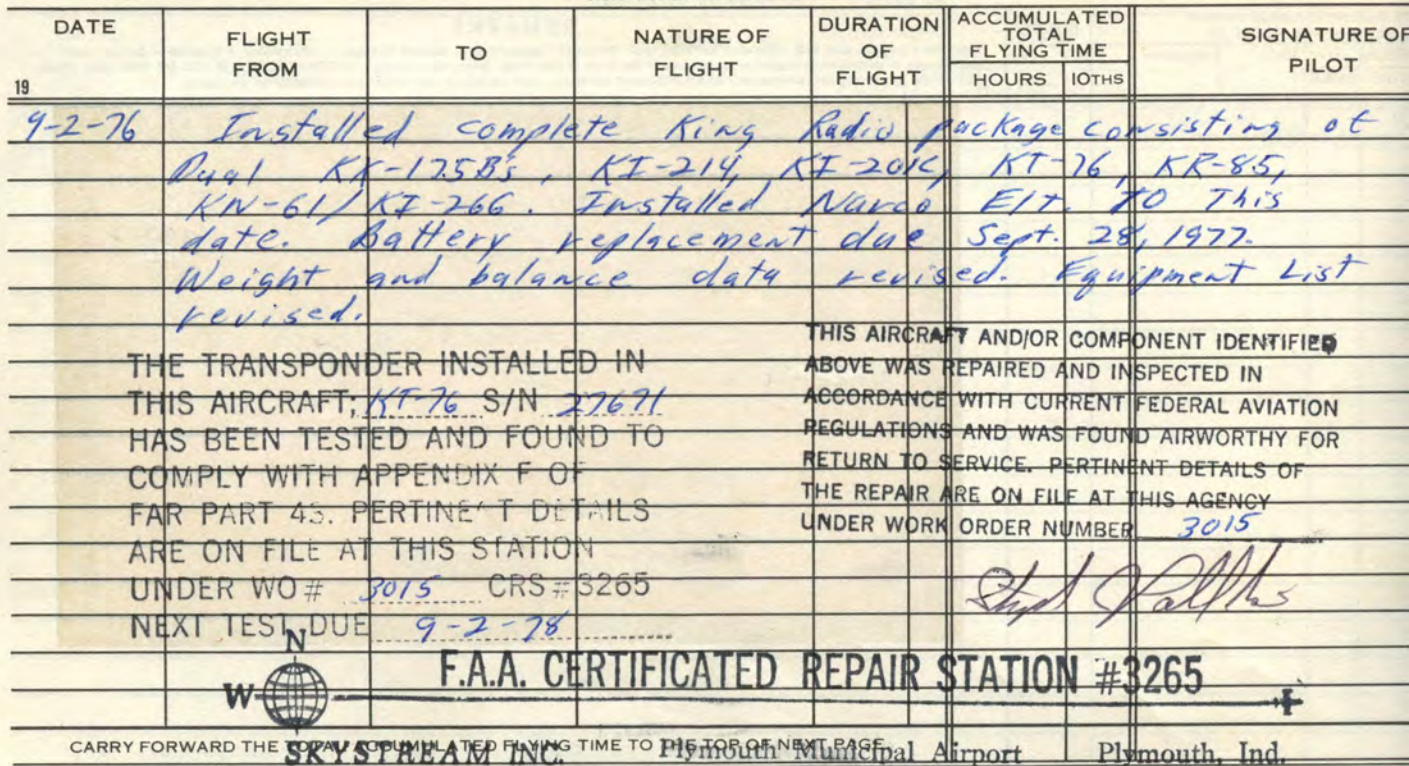 DATE FLIGHT FROM TO NATURE OF FLIGHT DURATION OF FLIGHT ACCUMULATED TOTAL FLYING TIME HOURS 10THS SIGNATURE OF PILOT
19
9-2-76 Installed complete King Radio package consisting of
Dual KX-175B's, KI-214, KI-201C, KT-76, KR-85,
KN-61/KI-266. Installed Narco Elt. TO This
date. Battery replacement due Sept. 28, 1977.
Weight and balance data revised. Equipment List
revised.
THE TRANSPONDER INSTALLED IN
THIS AIRCRAFT; KT-76 S/N 27671
HAS BEEN TESTED AND FOUND TO
COMPLY WITH APPENDIX F OF
FAR PART 43. PERTINENT DETAILS
ARE ON FILE AT THIS STATION
UNDER WO# 3015 CRS #3265
NEXT TEST DUE 9-2-78
THIS AIRCRAFT AND/OR COMPONENT IDENTIFIED
ABOVE WAS REPAIRED AND INSPECTED IN
ACCORDANCE WITH CURRENT FEDERAL AVIATION
REGULATIONS AND WAS FOUND AIRWORTHY FOR
RETURN TO SERVICE. PERTINENT DETAILS OF
THE REPAIR ARE ON FILE AT THIS AGENCY
UNDER WORK ORDER NUMBER 3015
N
W E
F.A.A. CERTIFICATED REPAIR STATION #3265
CARRY FORWARD THE TOTAL ACCUMULATED FLYING TIME TO THE TOP OF NEXT PAGE.
SKYSTREAM INC. Plymouth Municipal Airport Plymouth, Ind.